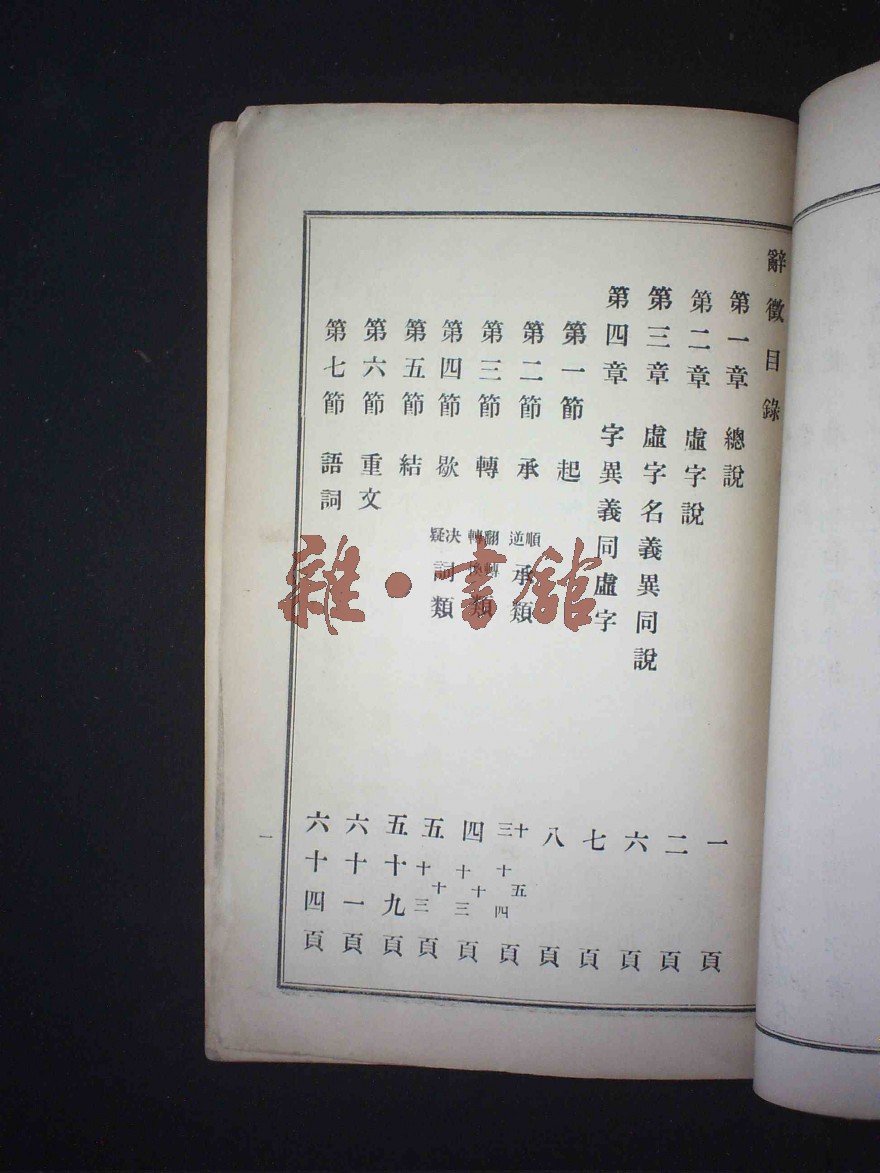 辭徵目錄
第一章 總說 一頁
第二章 虛字說 二頁
第三章 虛字名義異同說 六頁
第四章 字異義同虛字 七頁
第一節 起 八頁
第二節 承 順逆承類 十五三十四頁
第三節 轉 翻轉轉類 四十十三頁
第四節 歇 決疑詞類 五十十三頁
第五節 結 五十九頁
第六節 重文 六十一頁
第七節 語詞 六十四頁
一
雜·書館